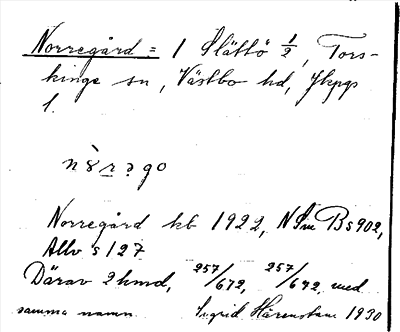 Norregård = 1 Slättö 1/2, Tors-
kinge sn, Västbo hd, Jkpgs
l.
nòrego
Norregård kb 1922, NSm Bs902,
Allv s 127
Därav 2 hmd, 257/672, 257/672 med
samma namn. Sigrid Härenstam 1930